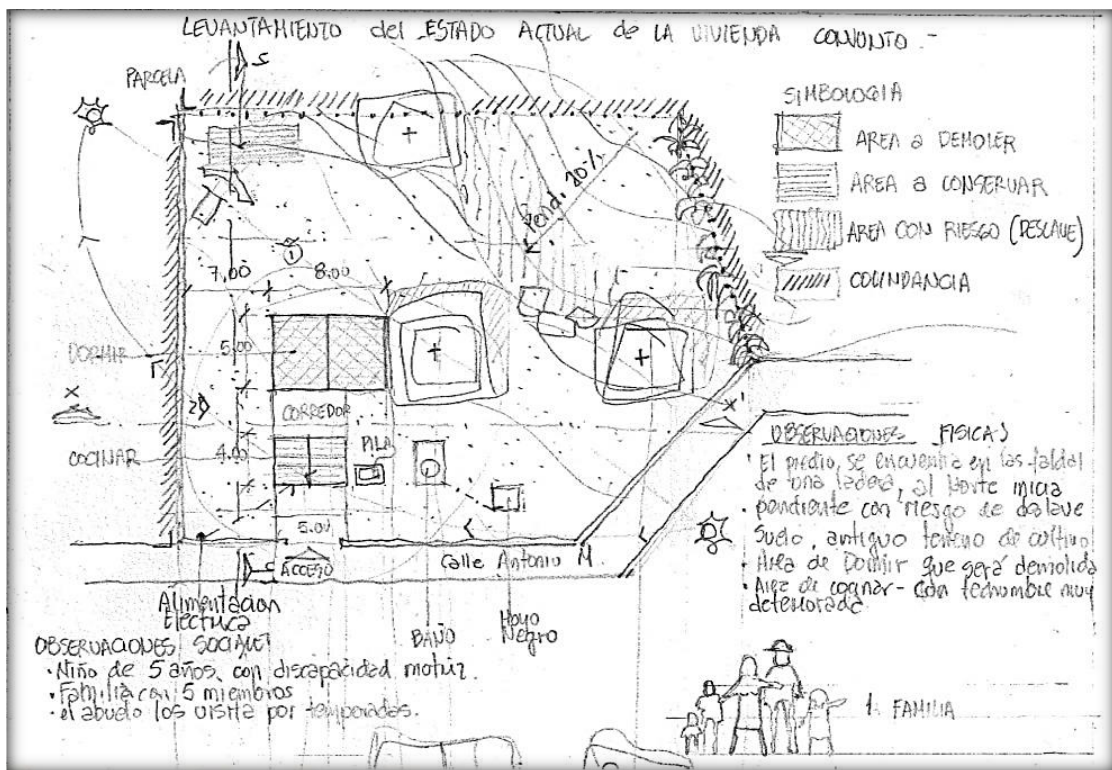 LEVANTAMIENTO del ESTADO ACTUAL de LA VIVIENDA CONJUNTO.-
S
PARCELA
SIMBOLOGIA
AREA a DEMOLER
AREA a CONSERVAR
AREA CON RIESGO (DESLAVE)
COLINDANCIA
Pend. 20%
1
7.00 8.00
DORMIR
5.00
X
2
CORREDOR
PILA
COCINAR
4.00
X'
5.00
ACCESO
S
Calle Antonio M.
Alimentacion
Electrica
BAÑO
Hoyo
Negro
OBSERVACIONES FISICAS
El predio, se encuentra en las faldas
de una ladera, al Norte inicia
pendiente con riesgo de deslave
Suelo, antiguo terreno de cultivo
Area de Dormir que será demolida
Area de cocinar - con techumbre muy
deteriorada
OBSERVACIONES SOCIALES
• Niño de 5 años, con discapacidad motriz.
• Familia con 5 miembros
• el abuelo los visita por temporadas.
1 FAMILIA